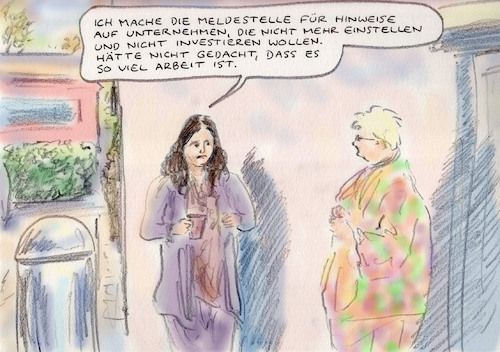 ICH MACHE DIE MELDESTELLE FÜR HINWEISE
AUF UNTERNEHMEN, DIE NICHT MEHR EINSTELLEN
UND NICHT INVESTIEREN WOLLEN.
HÄTTE NICHT GEDACHT, DASS ES
SO VIEL ARBEIT IST.